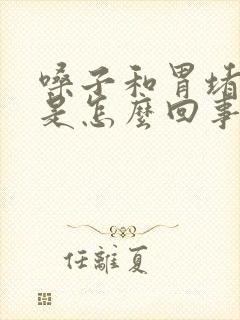 嗓子和胃堵
是怎麼回事
任離夏